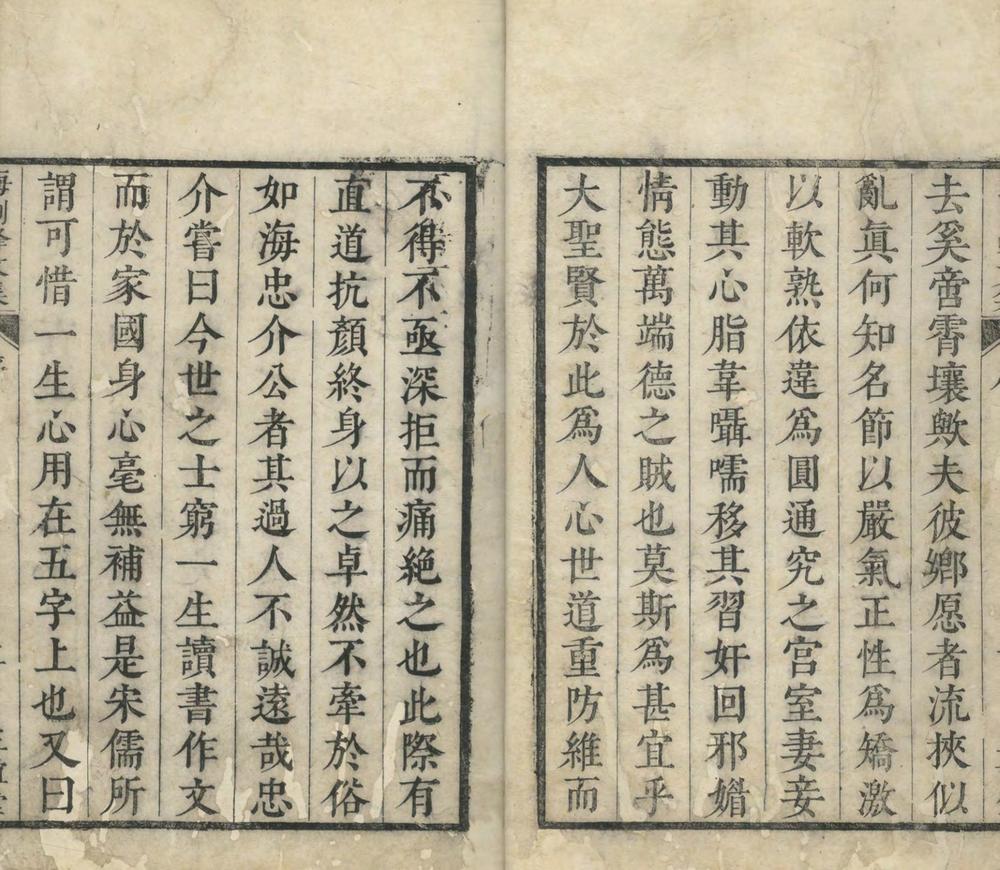 去奚啻霄壤歟夫彼鄉愿者流挾似
亂眞何知名節以嚴氣正性爲矯激
以軟熟依違爲圓通究之宮室妻妾
動其心脂韋囁嚅移其習奸回邪媢
情態萬端德之賊也莫斯爲甚宜乎
大聖賢於此爲人心世道重防維而
不得不亟深拒而痛絶之也此際有
直道抗顏終身以之卓然不牽於俗
如海忠介公者其過人不誠遠哉忠
介嘗曰今世之士窮一生讀書作文
而於家國身心毫無補益是宋儒所
謂可惜一生心用在五字上也又曰